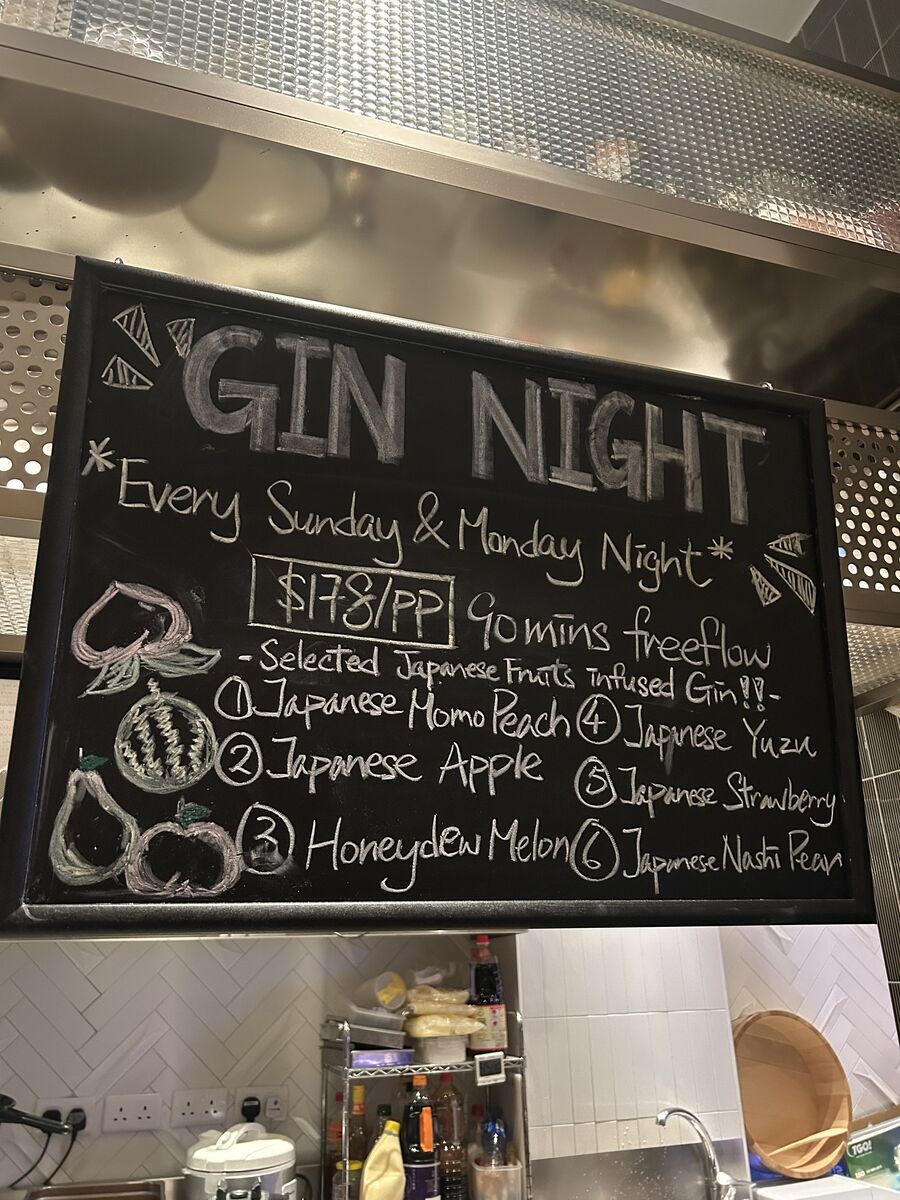 GIN NIGHT
*Every Sunday & Monday Night*
$178/PP 90mins freeflow
-Selected Japanese Fruits infused Gin!!-
① Japanese Momo Peach ④ Japanese Yuzu
② Japanese Apple ⑤ Japanese Strawberry
③ Honeydew Melon ⑥ Japanese Nashi Pear
TGO!